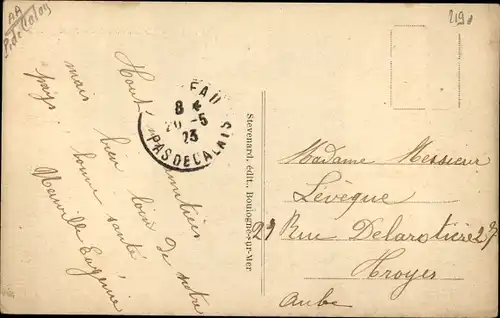 AA
P. de Calais
219
Tout
amitiés
bien loin de notre
mais bonne santé
pays
Neuville Eugénie
EAU
8 4
20 -5
23
PAS DE CALAIS
Stevenard, édit., Boulogne-sur-Mer.
Madame Messieur
Lévêque
29 Rue Delarotière 27
Troyes
Aube